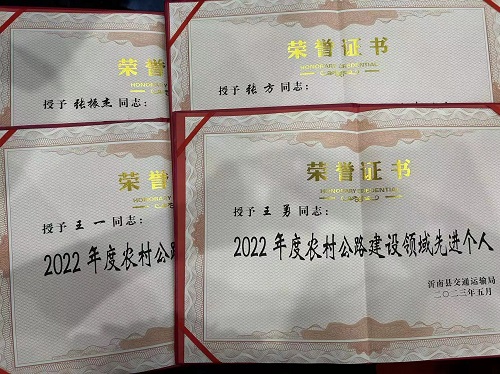 荣誉
HONORARY
授予张振杰同志：
荣誉证书
HONORARY CREDENTIAL
授予张方同志：
荣誉
HONORARY
授予王一同志：
2022年度农村公路
荣誉证书
HONORARY CREDENTIAL
授予王勇同志：
2022年度农村公路建设领域先进个人
沂南县交通运输局
二〇二三年五月